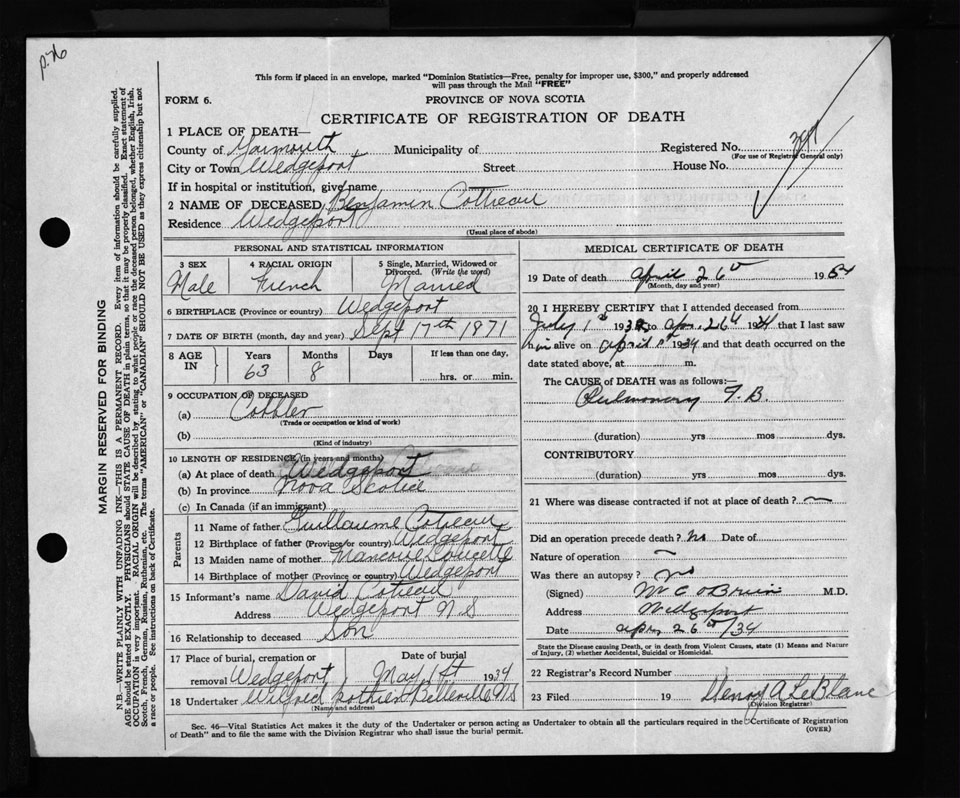 p.76
This form if placed in an envelope, marked "Dominion Statistics—Free, penalty for improper use, $300," and properly addressed
will pass through the Mail "FREE"
FORM 6.
PROVINCE OF NOVA SCOTIA
CERTIFICATE OF REGISTRATION OF DEATH
1 PLACE OF DEATH—
County of Yarmouth Municipality of Registered No.
(For use of Registrar General only)
City or Town Wedgeport Street House No.
If in hospital or institution, give name
2 NAME OF DECEASED Benjamin Cottreau
Residence Wedgeport
(Usual place of abode)
PERSONAL AND STATISTICAL INFORMATION
3 SEX 4 RACIAL ORIGIN 5 Single, Married, Widowed or
Divorced. (Write the word)
Male French Married
6 BIRTHPLACE (Province or country) Wedgeport
7 DATE OF BIRTH (month, day and year) Sept 17th 1871
8 AGE IN Years Months Days If less than one day,
63 8 hrs. or min.
9 OCCUPATION OF DECEASED
(a) Cobbler
(Trade or occupation or kind of work)
(b)
(Kind of industry)
10 LENGTH OF RESIDENCE (in years and months)
(a) At place of death Wedgeport
(b) In province Nova Scotia
(c) In Canada (if an immigrant)
Parents
11 Name of father Guillaume Cottreau
12 Birthplace of father (Province or country) Wedgeport
13 Maiden name of mother Doucette
14 Birthplace of mother (Province or country) Wedgeport
15 Informant's name David Cottreau
Address Wedgeport N S
16 Relationship to deceased Son
17 Place of burial, cremation or Date of burial
removal Wedgeport May 1st 1934
18 Undertaker Wilfred Pothier Belleville NS
(Name and address)
MEDICAL CERTIFICATE OF DEATH
19 Date of death April 26th 19
(Month, day and year)
20 I HEREBY CERTIFY that I attended deceased from
July 1st 193 to Apr. 26th 1934 that I last saw
him alive on April 1934 and that death occurred on the
date stated above, at m.
The CAUSE of DEATH was as follows:—
Pulmonary T.B.
(duration) yrs mos dys.
CONTRIBUTORY
(duration) yrs mos dys.
21 Where was disease contracted if not at place of death?
Did an operation precede death? No Date of
Nature of operation
Was there an autopsy? No
(Signed) O'Brien M.D.
Address Wedgeport
Date Apr, 26th/34
State the Disease causing Death, or in death from Violent Causes, state (1) Means and Nature
of Injury, (2) whether Accidental, Suicidal or Homicidal.
22 Registrar's Record Number
23 Filed 19 Henry A LeBlanc
(Division Registrar)
Sec. 46—Vital Statistics Act makes it the duty of the Undertaker or person acting as Undertaker to obtain all the particulars required in the "Certificate of Registration
of Death" and to file the same with the Division Registrar who shall issue the burial permit.
(OVER)
MARGIN RESERVED FOR BINDING
N.B.—WRITE PLAINLY WITH UNFADING INK—THIS IS A PERMANENT RECORD. Every item of information should be carefully supplied.
AGE should be stated EXACTLY. PHYSICIANS should STATE CAUSE OF DEATH in plain terms, so that it may be properly classified. Exact statement of
OCCUPATION is very important. RACIAL ORIGIN will be described by stating to what people or race the deceased person belonged, whether English, Irish,
Scotch, French, German, Russian, Ruthenian, etc. The terms "AMERICAN" or "CANADIAN" SHOULD NOT BE USED as they express citizenship but not
a race or people. See instructions on back of Certificate.